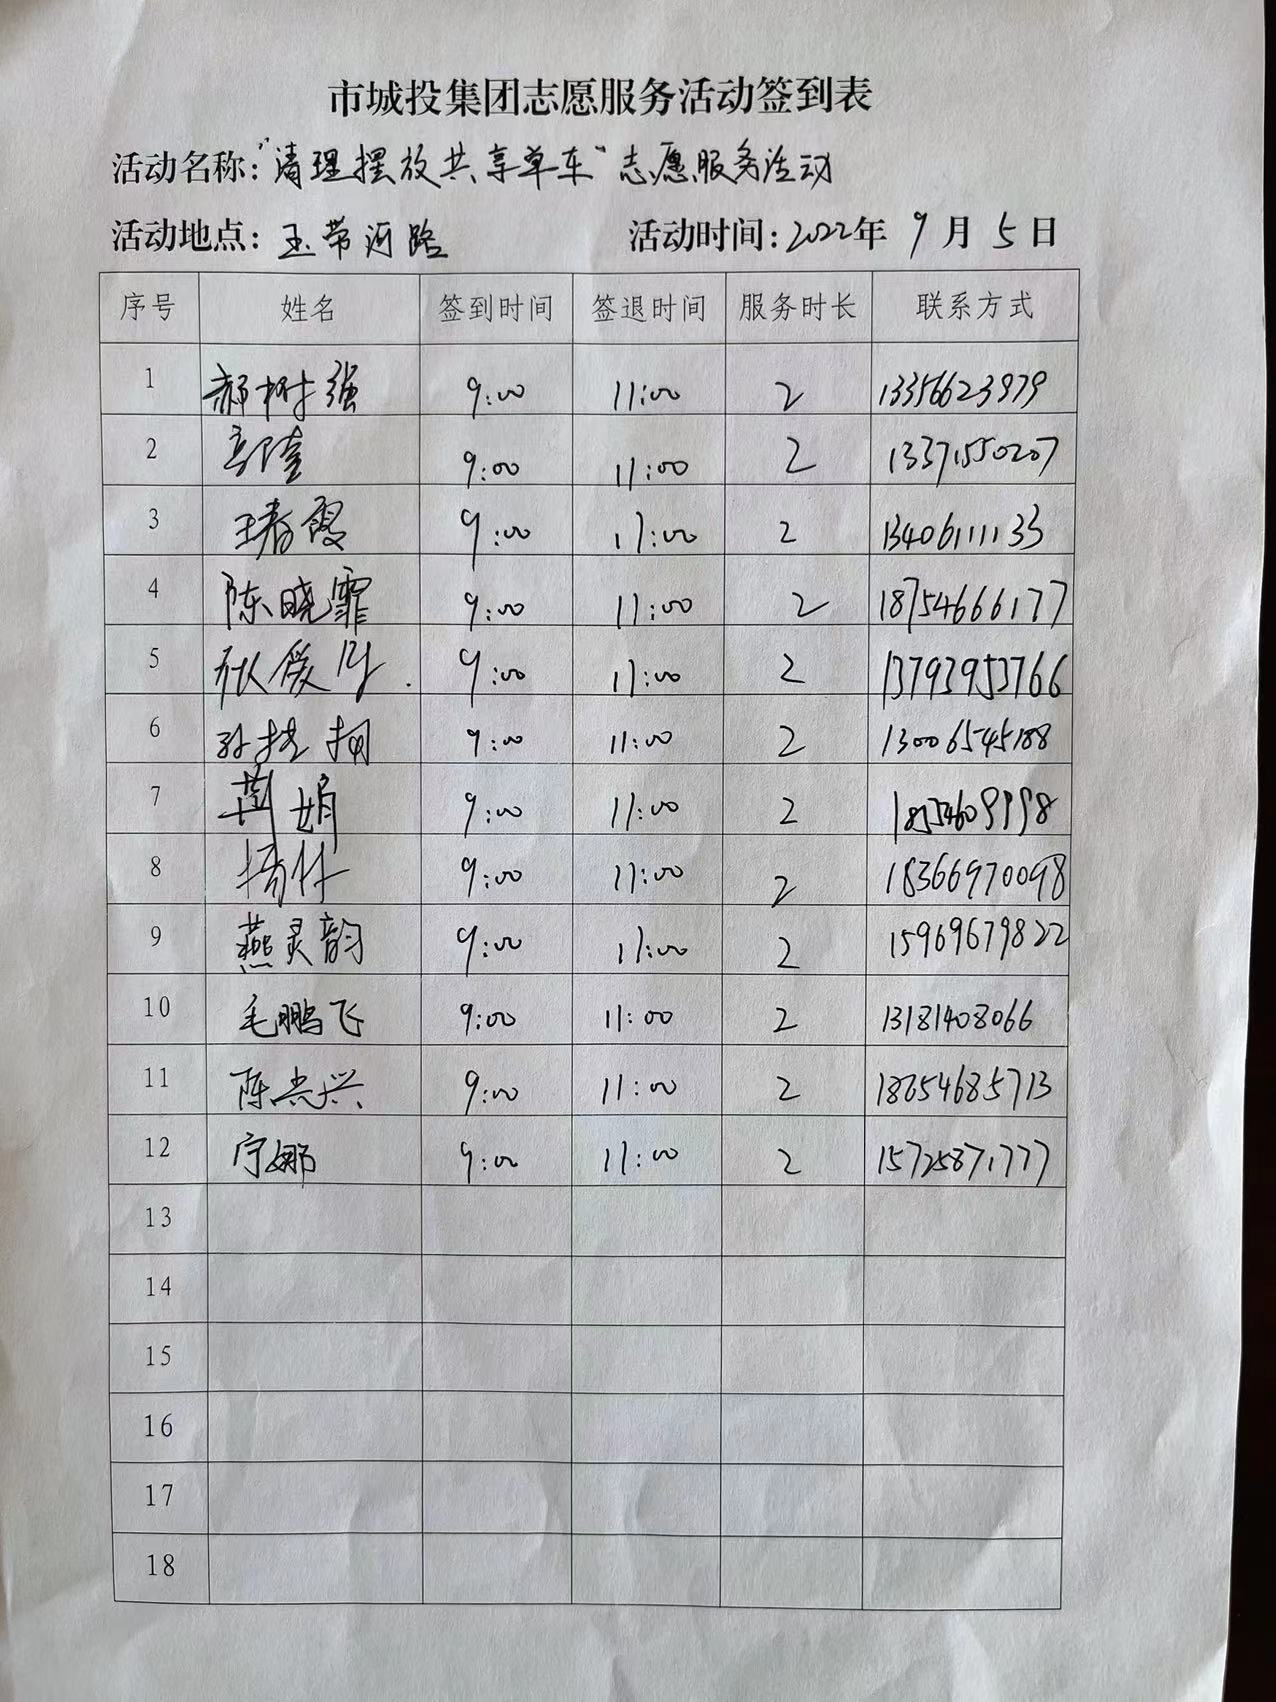 市城投集团志愿服务活动签到表
活动名称:“清理摆放共享单车”志愿服务活动
活动地点: 玉带河路 活动时间: 2022年 9 月 5 日
序号 姓名 签到时间 签退时间 服务时长 联系方式
1 郝树强 9:00 11:00 2 13356623979
2 9:00 11:00 2 13371550207
3 王春霞 9:00 11:00 2 13406111133
4 陈晓霏 9:00 11:00 2 18754666177
5 9:00 11:00 2 13793953766
6 9:00 11:00 2 13006545188
7 荆娟 9:00 11:00 2 18554609998
8 9:00 11:00 2 18366970098
9 燕灵韵 9:00 11:00 2 15969679822
10 毛鹏飞 9:00 11:00 2 13181408066
11 9:00 11:00 2 18654685713
12 宁娜 9:00 11:00 2 15725871777
13
14
15
16
17
18